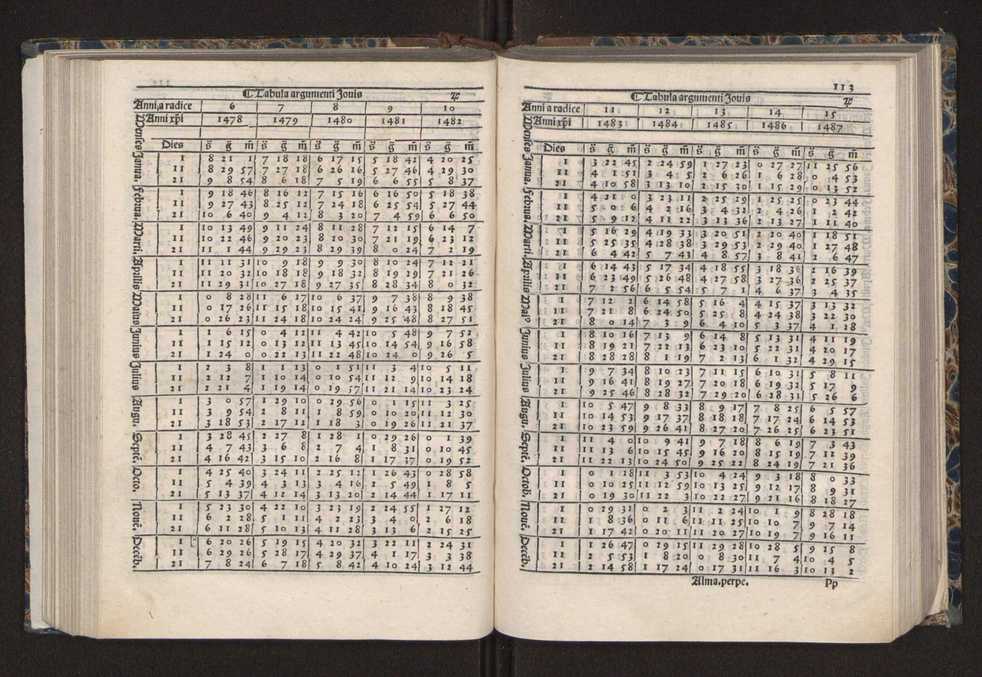 ⁋ Tabula argumenti Jovis ♃
Anni a radice 6 7 8 9 10
Anni xp̄i 1478 1479 1480 1481 1482
Menses Dies s̄ ḡ m̄ s̄ ḡ m̄ s̄ ḡ m̄ s̄ ḡ m̄ s̄ ḡ m̄
Janua. 1 8 21 1 7 18 18 6 17 15 5 18 42 4 20 25
11 8 29 57 7 27 18 6 26 16 5 27 46 4 29 30
21 9 8 54 8 6 18 7 5 19 6 6 55 5 8 37
Februa. 1 9 18 46 8 16 12 7 15 16 6 16 50 5 18 38
11 9 27 43 8 25 12 7 24 18 6 25 54 5 27 44
21 10 6 40 9 4 12 8 3 20 7 4 59 6 6 50
Marti. 1 10 13 49 9 11 24 8 11 28 7 12 15 6 14 7
11 10 22 46 9 20 23 8 20 30 7 21 19 6 23 12
21 11 1 44 9 29 23 8 29 39 8 0 24 7 2 19
Aprilis 1 11 11 31 10 9 18 9 9 30 8 10 24 7 12 21
11 11 20 32 10 18 18 9 18 32 8 19 29 7 21 26
21 11 29 31 10 27 18 9 27 35 8 28 34 8 0 32
Maius 1 0 8 28 11 6 17 10 6 37 9 7 38 8 9 38
11 0 17 26 11 15 18 10 15 41 9 16 43 8 18 45
21 0 26 23 11 24 18 10 24 24 9 25 48 8 27 51
Junius 1 1 6 15 0 4 12 11 4 42 10 5 48 9 7 52
11 1 15 12 0 13 12 11 13 45 10 14 54 9 16 58
21 1 24 0 0 22 13 11 22 48 10 24 0 9 26 5
Julius 1 2 3 8 1 1 13 0 1 51 11 3 4 10 5 11
11 2 12 7 1 10 14 0 10 54 11 12 9 10 14 18
21 2 21 4 1 19 14 0 19 57 11 21 14 10 23 24
Augu. 1 3 0 57 1 29 10 0 29 56 0 1 15 11 3 25
11 3 9 54 2 8 11 1 8 59 0 10 20 11 12 30
21 3 18 53 2 17 12 1 18 3 0 19 26 11 21 37
Septē. 1 3 28 45 2 27 8 1 28 1 0 29 26 0 1 39
11 4 7 43 3 6 8 2 7 4 1 8 31 0 10 45
21 4 16 42 3 15 10 2 16 8 1 17 37 0 19 52
Octo. 1 4 25 40 3 24 11 2 25 12 1 26 43 0 28 58
11 5 4 39 4 3 13 3 4 16 2 5 49 1 8 5
21 5 13 37 4 12 14 3 13 20 2 14 44 1 17 11
Nouē. 1 5 23 30 4 22 10 3 23 19 2 24 55 1 27 12
11 6 2 28 5 1 11 4 2 23 3 4 0 2 6 18
21 6 11 28 5 10 13 4 11 28 3 13 6 2 15 25
Decēb. 1 6 20 26 5 19 15 4 20 32 3 22 11 2 24 31
11 6 29 26 5 28 17 4 29 37 4 1 17 3 3 38
21 7 8 24 6 7 18 5 8 42 4 10 24 3 12 44
113
⁋ Tabula argumenti Jovis ♃
Anni a radice 11 12 13 14 15
Anni xp̄i 1483 1484 1485 1486 1487
Menses Dies s̄ ḡ m̄ s̄ ḡ m̄ s̄ ḡ m̄ s̄ ḡ m̄ s̄ ḡ m̄
Janua. 1 3 22 45 2 24 59 1 27 23 0 27 27 11 25 56
11 4 1 51 3 4 5 2 6 26 1 6 28 0 4 53
21 4 10 58 3 13 10 2 15 30 1 15 29 0 13 52
Februa. 1 4 21 0 3 23 11 2 25 29 1 25 25 0 23 44
11 5 0 6 4 2 16 3 4 32 2 4 26 1 2 42
21 5 9 12 4 11 22 3 13 36 2 13 27 1 11 40
Marti. 1 5 16 29 4 19 33 3 20 51 2 20 40 1 18 51
11 5 25 35 4 28 38 3 29 53 2 29 40 1 27 48
21 6 4 42 5 7 43 4 8 57 3 8 41 2 6 47
Aprilis 1 6 14 43 5 17 34 4 18 55 3 18 36 2 16 39
11 6 23 49 5 26 48 4 27 58 3 27 36 2 25 37
21 7 2 56 6 5 54 5 7 1 4 6 37 3 4 35
Mai⁹ 1 7 12 2 6 14 58 5 16 4 4 15 37 3 13 32
11 7 21 8 6 24 50 5 25 8 4 24 38 3 22 30
21 8 0 14 7 3 9 6 4 10 5 3 37 4 1 18
Junius 1 8 10 16 7 13 9 6 14 8 5 13 31 4 11 19
11 8 19 21 7 22 13 6 23 10 5 22 31 4 20 17
21 8 28 28 8 1 19 7 2 13 6 1 32 4 29 15
Julius 1 9 7 34 8 10 23 7 11 15 6 10 31 5 8 11
11 9 16 41 8 19 27 7 20 18 6 19 31 5 17 9
21 9 25 46 8 28 32 7 29 20 6 28 31 5 26 6
Augu. 1 10 5 47 9 8 33 8 9 17 7 8 25 6 5 57
11 10 14 53 9 17 37 8 18 18 7 17 26 6 14 53
21 10 23 59 9 26 41 8 27 20 7 26 25 6 23 51
Septē. 1 11 4 0 10 9 41 9 7 18 8 6 19 7 3 43
11 11 13 6 10 15 45 9 16 20 8 15 19 7 12 39
21 11 22 13 10 24 50 9 25 22 8 24 19 7 21 36
Octob. 1 0 1 18 11 3 53 10 4 24 9 3 18 8 0 33
11 0 10 25 11 12 59 10 13 25 9 12 17 8 9 31
21 0 19 30 11 22 3 10 22 27 9 21 16 8 18 27
Nouē. 1 0 29 31 0 2 3 11 2 24 10 1 9 8 28 18
11 1 8 36 0 11 6 11 11 25 10 10 7 9 7 14
21 1 17 42 0 20 11 11 20 27 10 19 7 9 16 11
Decēb. 1 1 26 47 0 29 15 11 29 28 10 28 5 9 25 8
11 2 5 53 1 8 20 0 8 30 11 7 4 10 4 5
21 2 14 58 1 17 24 0 17 31 11 16 3 10 13 2
Alma.perpe. Pp